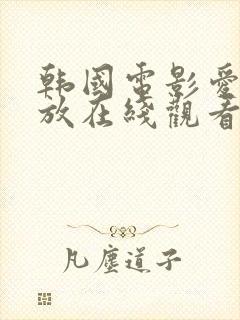 韩國電影愛
放在綫觀看
凡塵道子